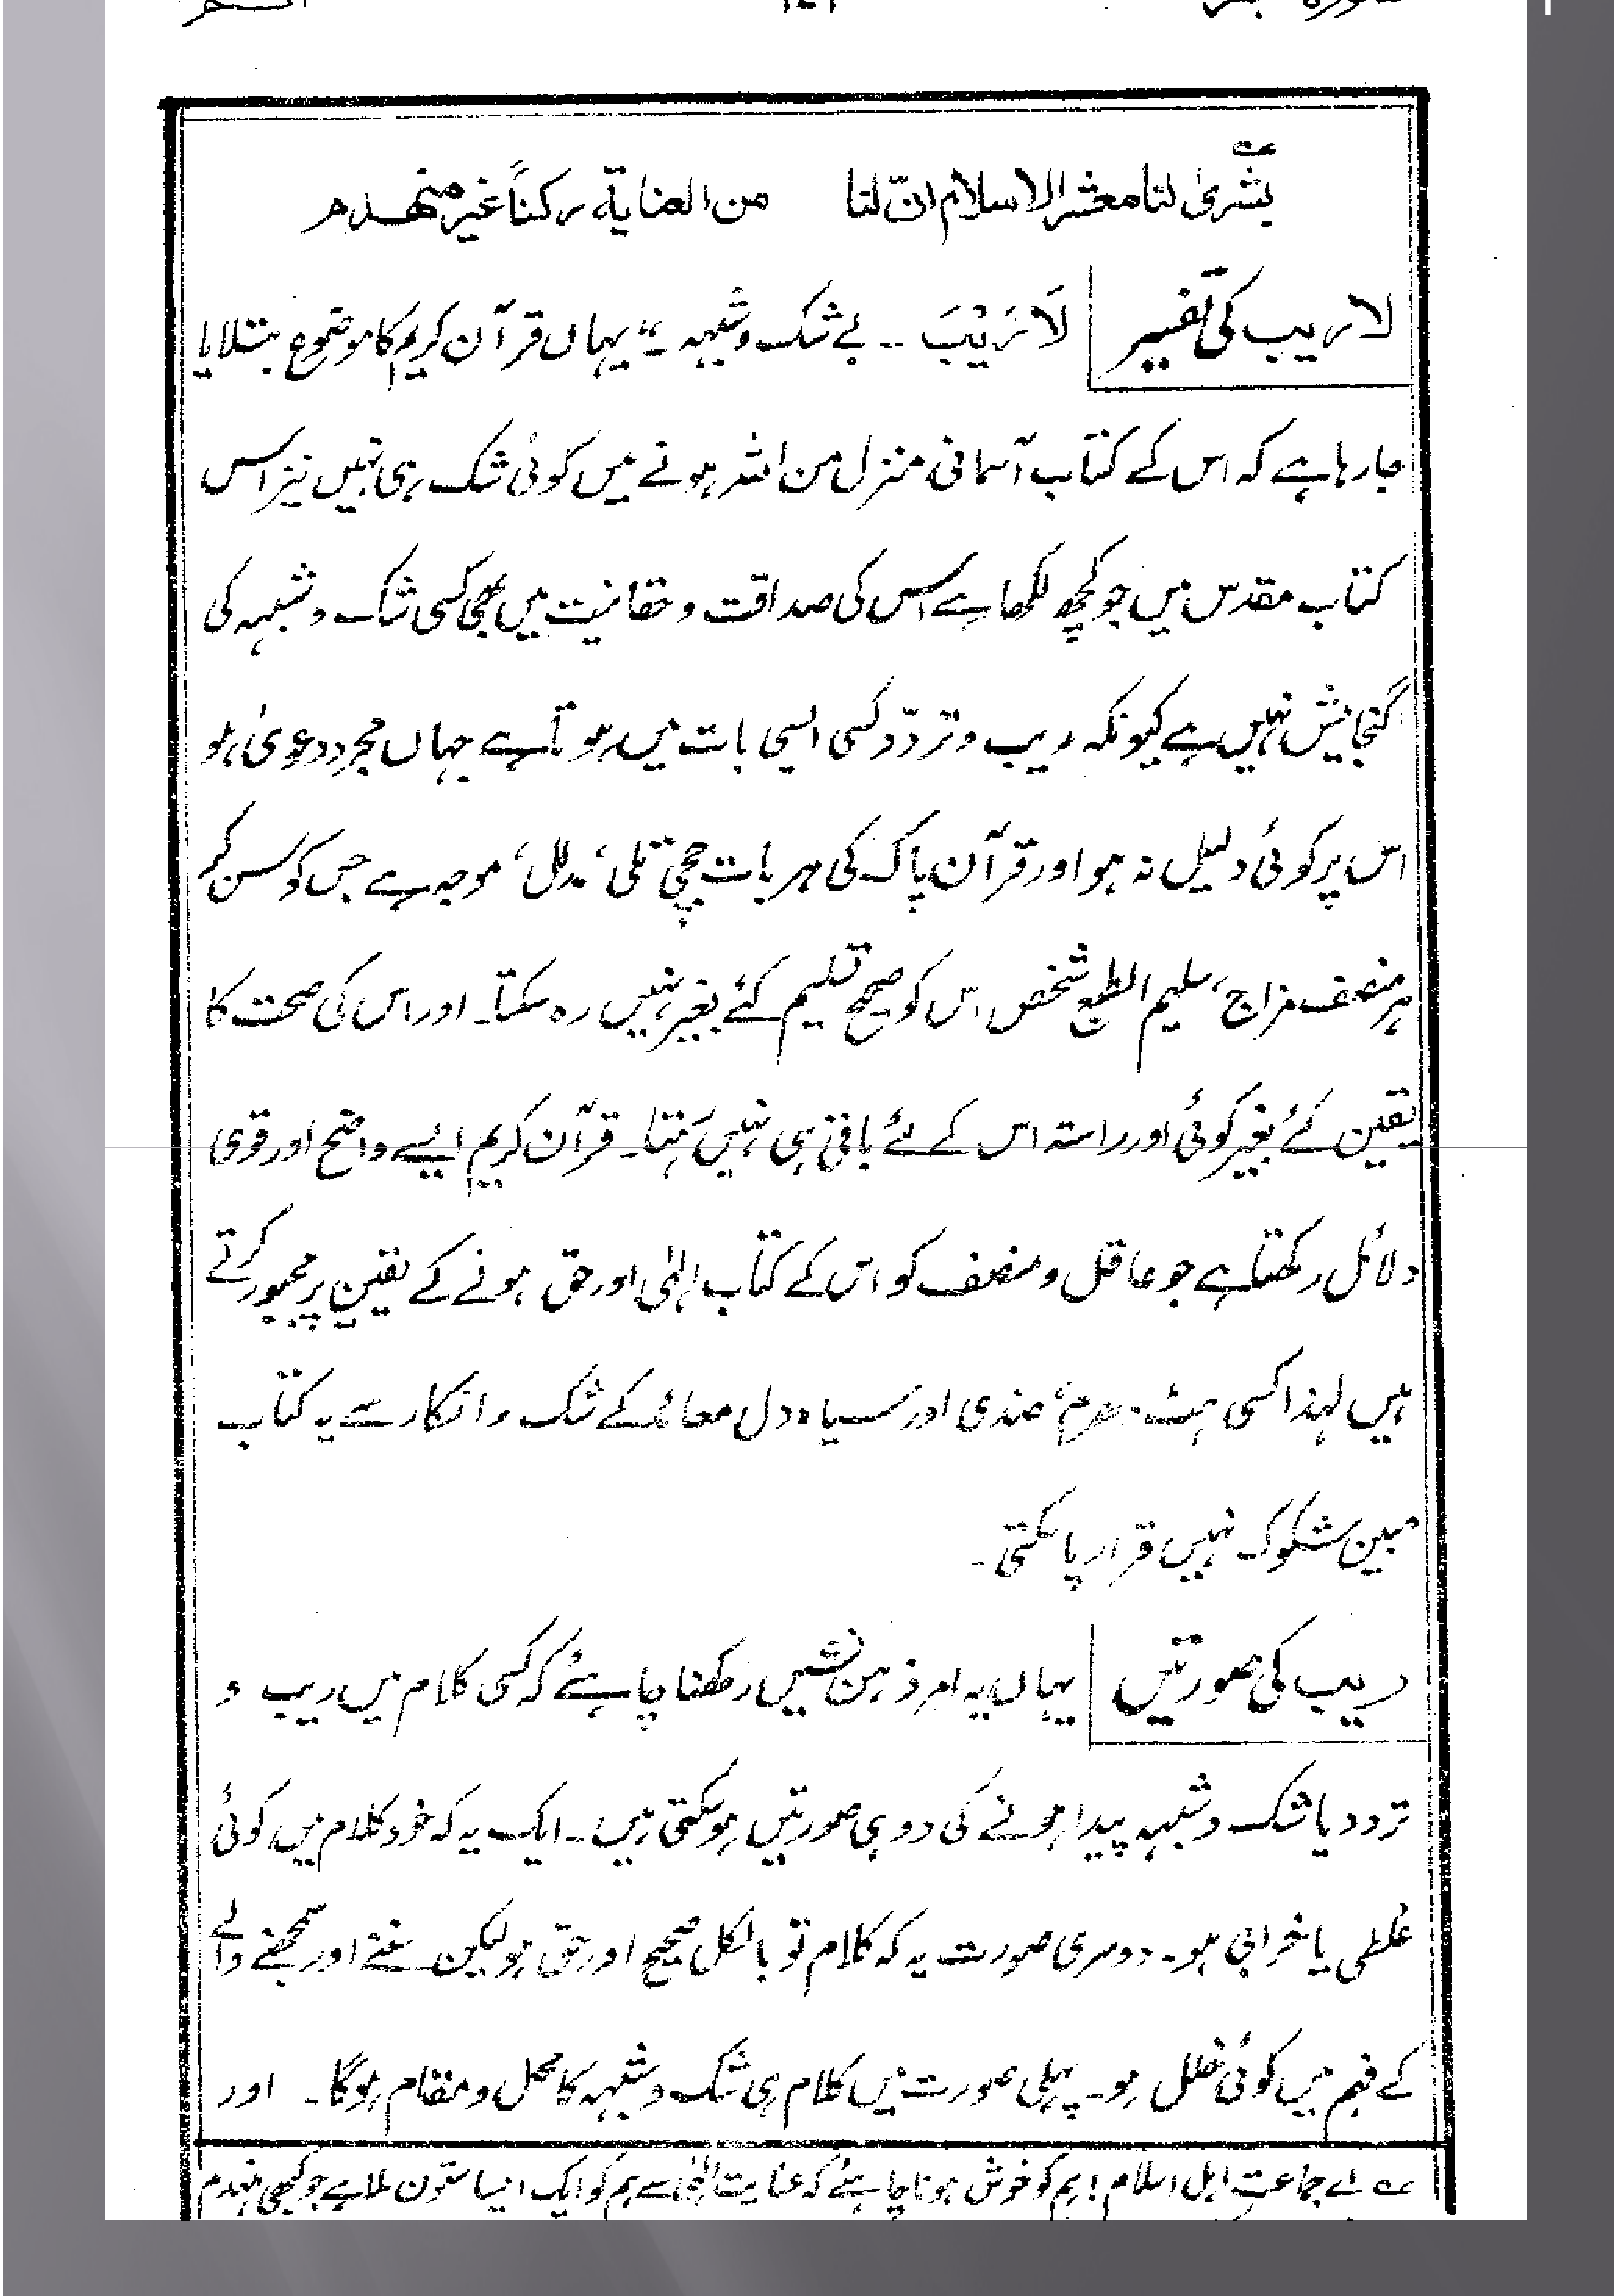 بشّریٰ لنا معشر الاسلام انّ لنا من العنایة رکناً غیر منهدم
لا ریب کی تفسیر لَا رَیْبَ ۔ بے شک و شبہہ ۔، یہاں قرآن کریم کا موضوع بتلایا
جا رہا ہے کہ اس کے کتاب آسمانی منزل من اللہ ہونے میں کوئی شک ہی نہیں نیز اس
کتاب مقدس میں جو کچھ لکھا ہے اس کی صداقت و حقانیت میں بھی کسی شک و شبہہ کی
گنجایش نہیں ہے کیونکہ ریب و تردّد کسی ایسی بات میں ہوتا ہے جہاں مجرد دعویٰ ہو
اس پر کوئی دلیل نہ ہو اور قرآن پاک کی ہر بات جچی تلی، مدلل، موجہ ہے جس کو سن کر
ہر منصف مزاج، سلیم الطبع شخص اس کو صحیح تسلیم کئے بغیر نہیں رہ سکتا۔ اور اس کی صحت کا
یقین کئے بغیر کوئی اور راستہ اس کے لئے باقی ہی نہیں رہتا۔ قرآن کریم ایسے واضح اور قوی
دلائل رکھتا ہے جو عاقل و منصف کو اس کے کتاب الٰہی اور حق ہونے کے یقین پر مجبور کرتے
ہیں لہذا کسی ہٹ دھرم، ضدی اور سیاہ دل معاند کے شک و انکار سے یہ کتاب
مبین مشکوک نہیں قرار پا سکتی۔
ریب کی صورتیں یہاں یہ امر ذہن نشیں رکھنا چاہئے کہ کسی کلام میں ریب و
تردد یا شک و شبہہ پیدا ہونے کی دو ہی صورتیں ہو سکتی ہیں۔ ایک یہ کہ خود کلام میں کوئی
غلطی یا خرابی ہو۔ دوسری صورت یہ کہ کلام تو بالکل صحیح اور حق ہو لیکن سننے اور سمجھنے والے
کے فہم میں کوئی خلل ہو۔ پہلی صورت میں کلام ہی شک و شبہہ کا محل و مقام ہوگا۔ اور
عہ اے جماعت اہل اسلام! ہم کو خوش ہونا چاہئے کہ عنایت الٰہی سے ہم کو ایک ایسا ستون ملا ہے جو کبھی منہدم